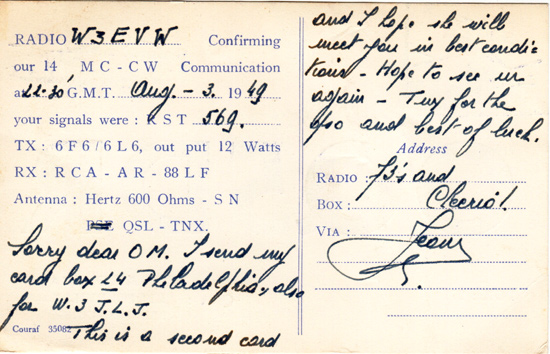 RADIO W3EVW Confirming
our 14 MC-CW Communication
at 22-30 G.M.T. Aug. - 3. 1949
your signals were : R S T 569.
TX : 6 F 6 / 6 L 6, out put 12 Watts
RX : R C A - A R - 88 L F
Antenna : Hertz 600 Ohms - S N
PSE QSL - TNX.
Sorry dear OM. I send my
card box 24 Philadelphia, also
for W.3 J.L.J.
Couraf 35082 This is a second card
and I hope she will
meet you in best condi-
tions - Hope to see ur
again - Tnx for the
qso and best of luck.
Address
RADIO : 73's and
BOX : Cheerio!
VIA : Jean